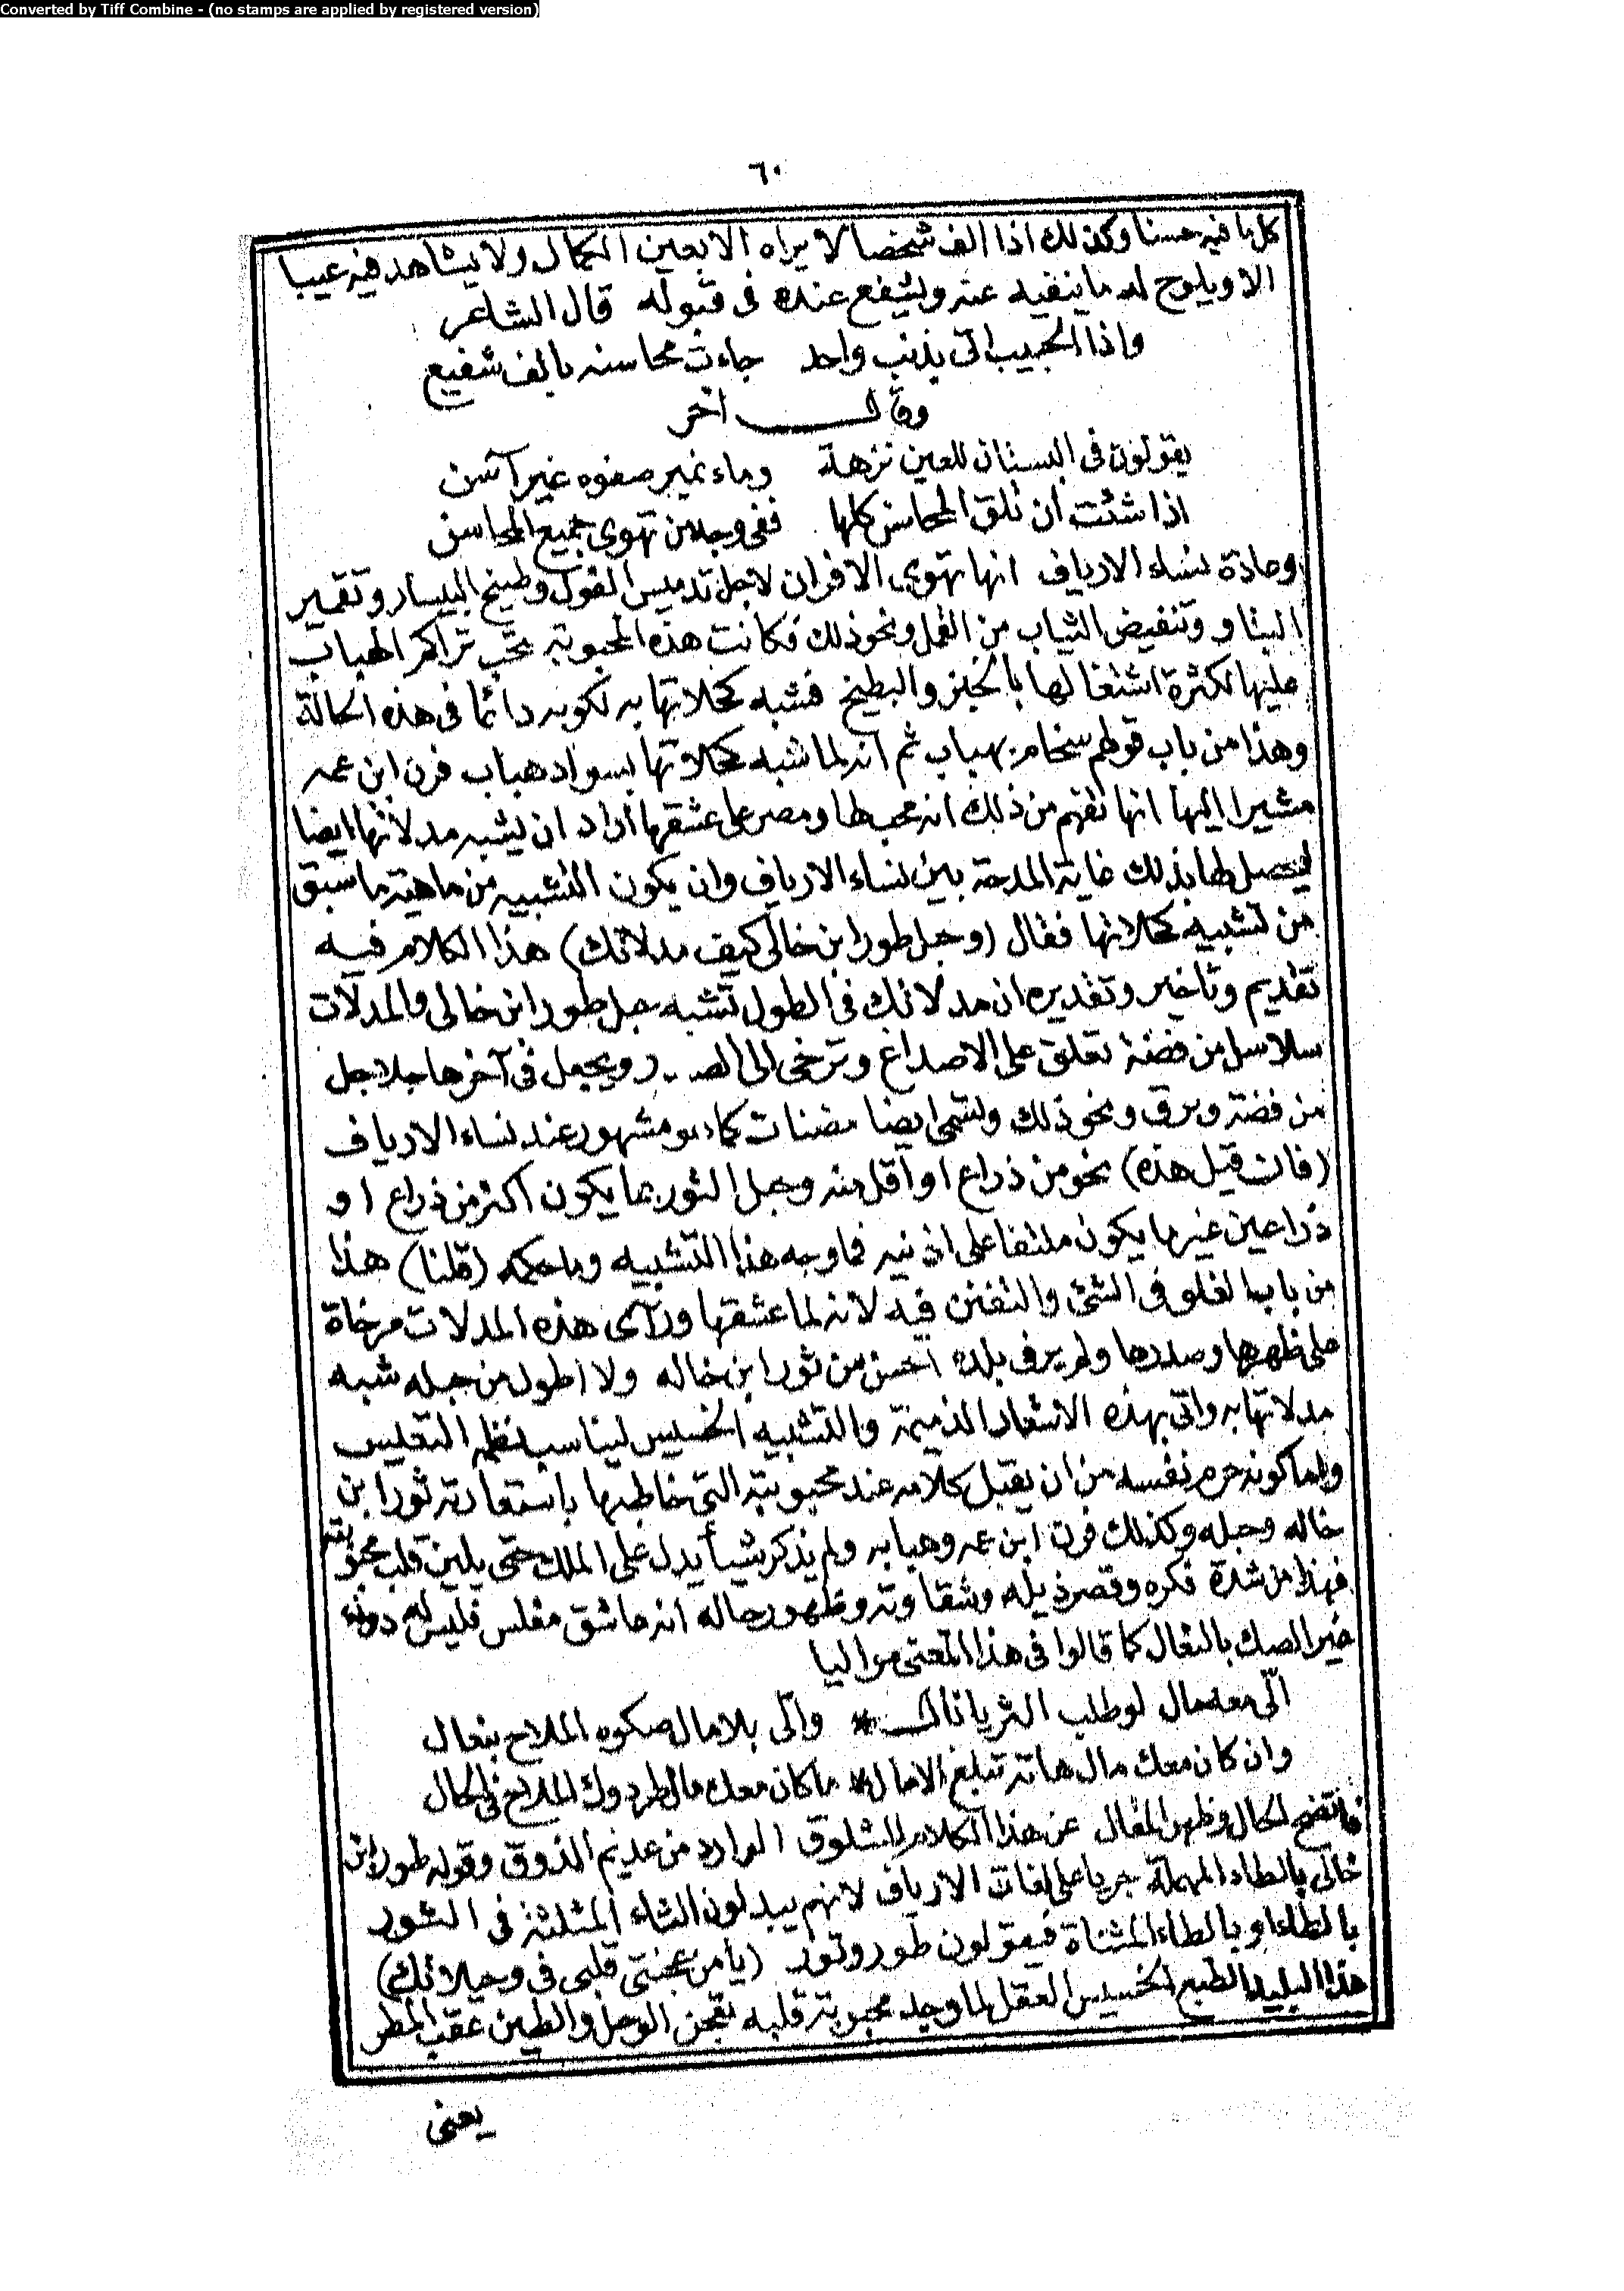 Converted by Tiff Combine - (no stamps are applied by registered version)
٦٠
كل ما فيه حسنا وكذلك اذا الف شخصا لا يراه الا بعين الكمال ولا يشاهد فيه عيبا
الا ويلوح له ما ينفيه عنه ويشفع عنده فى قبوله قال الشاعر
واذا الحبيب اتى بذنب واحد جاءت محاسنه بالف شفيع
وقال اخر
يقولون فى البستان للعين نزهة وماء نمير صفوه غير آسن
اذا شئت ان تلق المحاسن كلها ففى وجه من تهوى جميع المحاسن
وعادة نساء الارياف انها تهوى الافران لاجل تدميس الفول وطبيخ البيسار وتقمير
البتاو وتنفيض الثياب من القمل ونحو ذلك فكانت هذه المحبوبة تحب تراكم الهباب
عليها لكثرة اشتغالها بالخبز والبطيخ فشبه كحلاتها به لكونه دائما فى هذه الحالة
وهذا من باب قولهم سخام بهباب ثم انه لما شبه كحلاتها بسواد هباب فرن ابن عمه
مشيرا اليها انها تفهم من ذلك انه محب لها ومصر على عشقها اراد ان يشبه مدلاتها ايضا
ليحصل لها بذلك غاية المدحة بين نساء الارياف وان يكون التشبيه من ماهية ما سبق
من تشبيه كحلاتها فقال (وحبل طور ابن خالى كيف مدلاتك) هذا الكلام فيه
تقديم وتاخير وتقديره ان مدلاتك فى الطول تشبه حبل طور ابن خالى والمدلات
سلاسل من فضة تعلق على الاصداغ وترخى الى الصدر ويجعل فى آخرها جلاجل
من فضة وبرق ونحو ذلك وتسمى ايضا مضنات كما هو مشهور عند نساء الارياف
(فان قيل هذه) نحو من ذراع او أقل منه وحبل الثور بما يكون اكثر من ذراع او
ذراعين غير ما يكون ملتفا على اذنيه فما وجه هذا التشبيه وما حكمه (قلنا) هذا
من باب الغلو فى الشئ والتفنن فيه لانه لما عشقها ورآى هذه المدلات مرخاة
على ظهرها وصدرها ولم ير فى بلده احسن من ثور ابن خاله ولا اطول من حبله شبه
مدلاتها به واتى بهذه الاشعار الذميمة والتشبيه الخسيس ليناسب نظمه التعليس
واما كونه حرم نفسه من ان يقبل كلامه عند محبوبته التى خاطبها باستعارته ثور ابن
خاله وحبله وكذلك فرن ابن عمه وهبابه ولم يذكر شيأ يدل على الملك حتى يلين قلب محبوبته
فهذا من شدة فكره وقصر ذيله وشقاوته وظهور حاله انه عاشق مفلس فليس له دواء
غير الصك بالنعال كما قالوا فى هذا المعنى مواليا
الّى معه مال لو طلب الثريا نال * والّى بلا مال صكوه الملاح بنعال
وان كان معك مال هاته تبلغ الامال * ما كان معك مال طردوك الملاح فى الحال
فاتضح الحال وظهر المقال عن هذا الكلام المشلوق الوارد من عديم الذوق وقوله طور ابن
خالى بالطاء المهملة جريا على لغات الارياف لانهم يبدلون الثاء المثلثة فى الثور
بالطاء او بالطاء المثناة فيقولون طور وتور (يا من عجنتى قلبى فى وحيلاتك)
هذا البليد الطبع الخسيس العقل لما وجد محبوبته قلبه تعجن الوحل والطين عقب المطر
يعنى